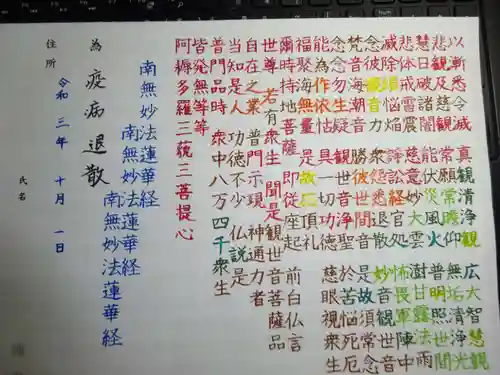 以漸悉令滅 真観清浄観 広大智慧観
悲観及慈観 常願常瞻仰 無垢清浄光
慧日破諸闇 能伏災風火 普明照世間
悲体戒雷震 慈意妙大雲 澍甘露法雨
滅除煩悩焔 諍訟経官処 怖畏軍陣中
念彼観音力 衆怨悉退散 妙音観世音
梵音海潮音 勝彼世間音 是故須常念
念念勿生疑 観世音浄聖 於苦悩死厄
能為作依怙 具一切功徳 慈眼視衆生
福聚海無量 是故応頂礼
爾時持地菩薩 即従座起 前白仏言
世尊 若有衆生 聞是観世音菩薩品
自在之業 普門示現 神通力者
当知是人 功徳不少 仏説是
普門品時 衆中八万四千衆生
皆発無等等
阿耨多羅三藐三菩提心
南無妙法蓮華経
南無妙法蓮華経
南無妙法蓮華経
為 疫病退散
令和 三年 十月 一日
住所
氏名